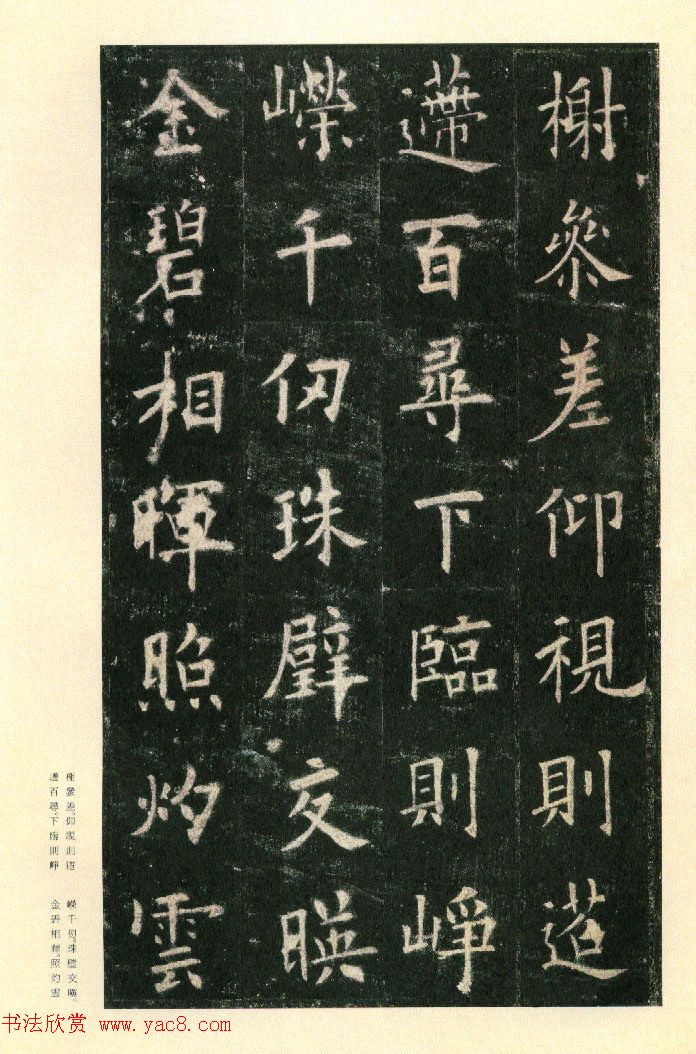 榭參差仰視則迢
遰百尋下臨則崢
嶸千仞珠璧交暎
金碧相暉照灼雲
榭參差。仰視則迢
遰百尋。下臨則崢
嶸千仞。珠璧交暎。
金碧相暉。照灼雲
书法欣赏 www.yac8.com